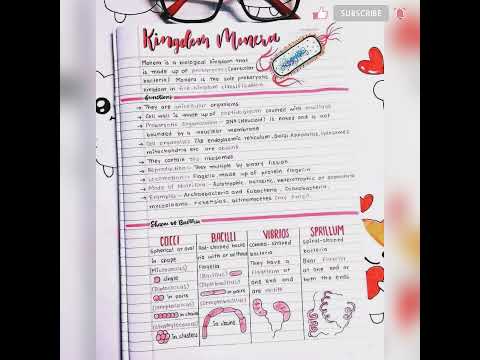 SUBSCRIBE
Kingdom Monera
Monera is a biological kingdom that
is made up of prokaryotes (particular
bacteria). Monera is the sole prokaryotic
kingdom in five-kingdom classification
→ They are unicellular organisms.
→ Cell wall is made up of peptidoglycan covered with
→ Prokaryotic organisation - DNA (Nucleoid) is naked and is not
bounded by a nuclear membrane
→ Cell organelles like endoplasmic reticulum, Golgi Apparatus, lysosomes
mitochondria etc. are absent
→ They contain 70s ribosomes
→ Reproduction - They multiply by binary fission
→ Locomotion - Flagella made up of protein flagellin
→ Mode of Nutrition - Autotrophic, parasitic, heterotrophic or saprophytic
→ Examples - Archaebacteria and Eubacteria - Cyanobacteria,
mycoplasma, rickettsias, actinomycetes
Shape of Bacteria
COCCI
Spherical or oval
in shape
(Micrococcus)
single
(Diplococcus)
in pairs
(Streptococcus)
in chains
(Staphylococcus)
in clusters
BACILLI
Rod-shaped bacte
ria with or without
Flagella
(Bacillus)
(Diplobacillus)
in pairs
(Streptobacillus)
In chains
VIBRIOS
comma-shaped
bacteria
They have a
flagellum at
one end and
are motile
SPRILLUM
spiral-shaped
bacteria
Bear flagella
at one end or
both the ends